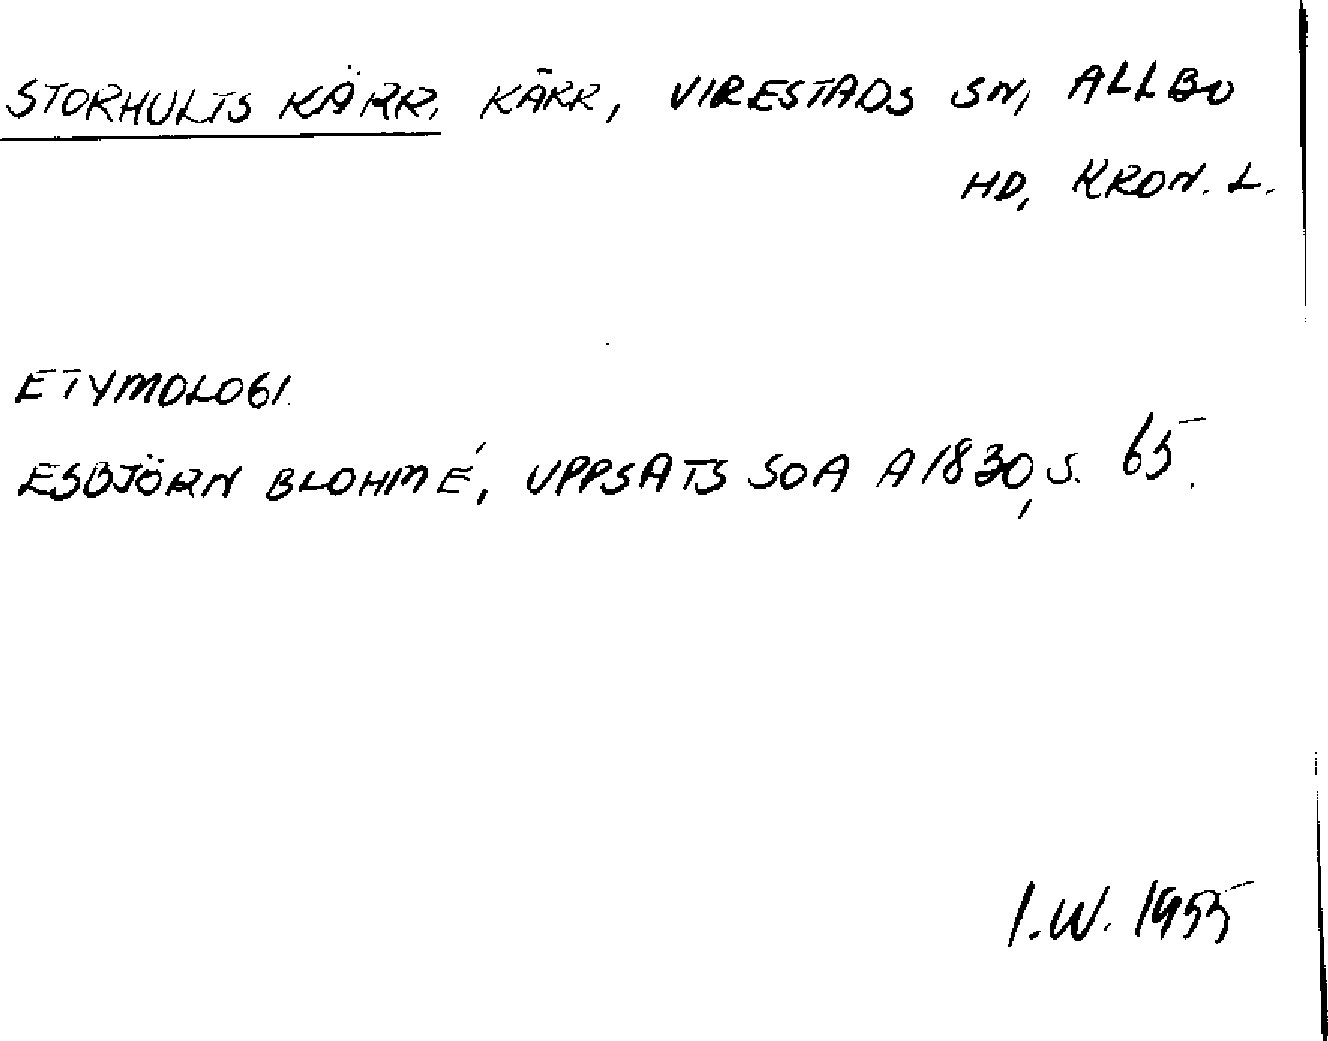 STORHULTS KÄRR, KÄRR, VIRESTADS SN, ALLBO
HD, KRON. L.
ETYMOLOGI.
ESBJÖRN BLOHMÉ, UPPSATS SOA A 1830, S. 65.
I.W. 1955